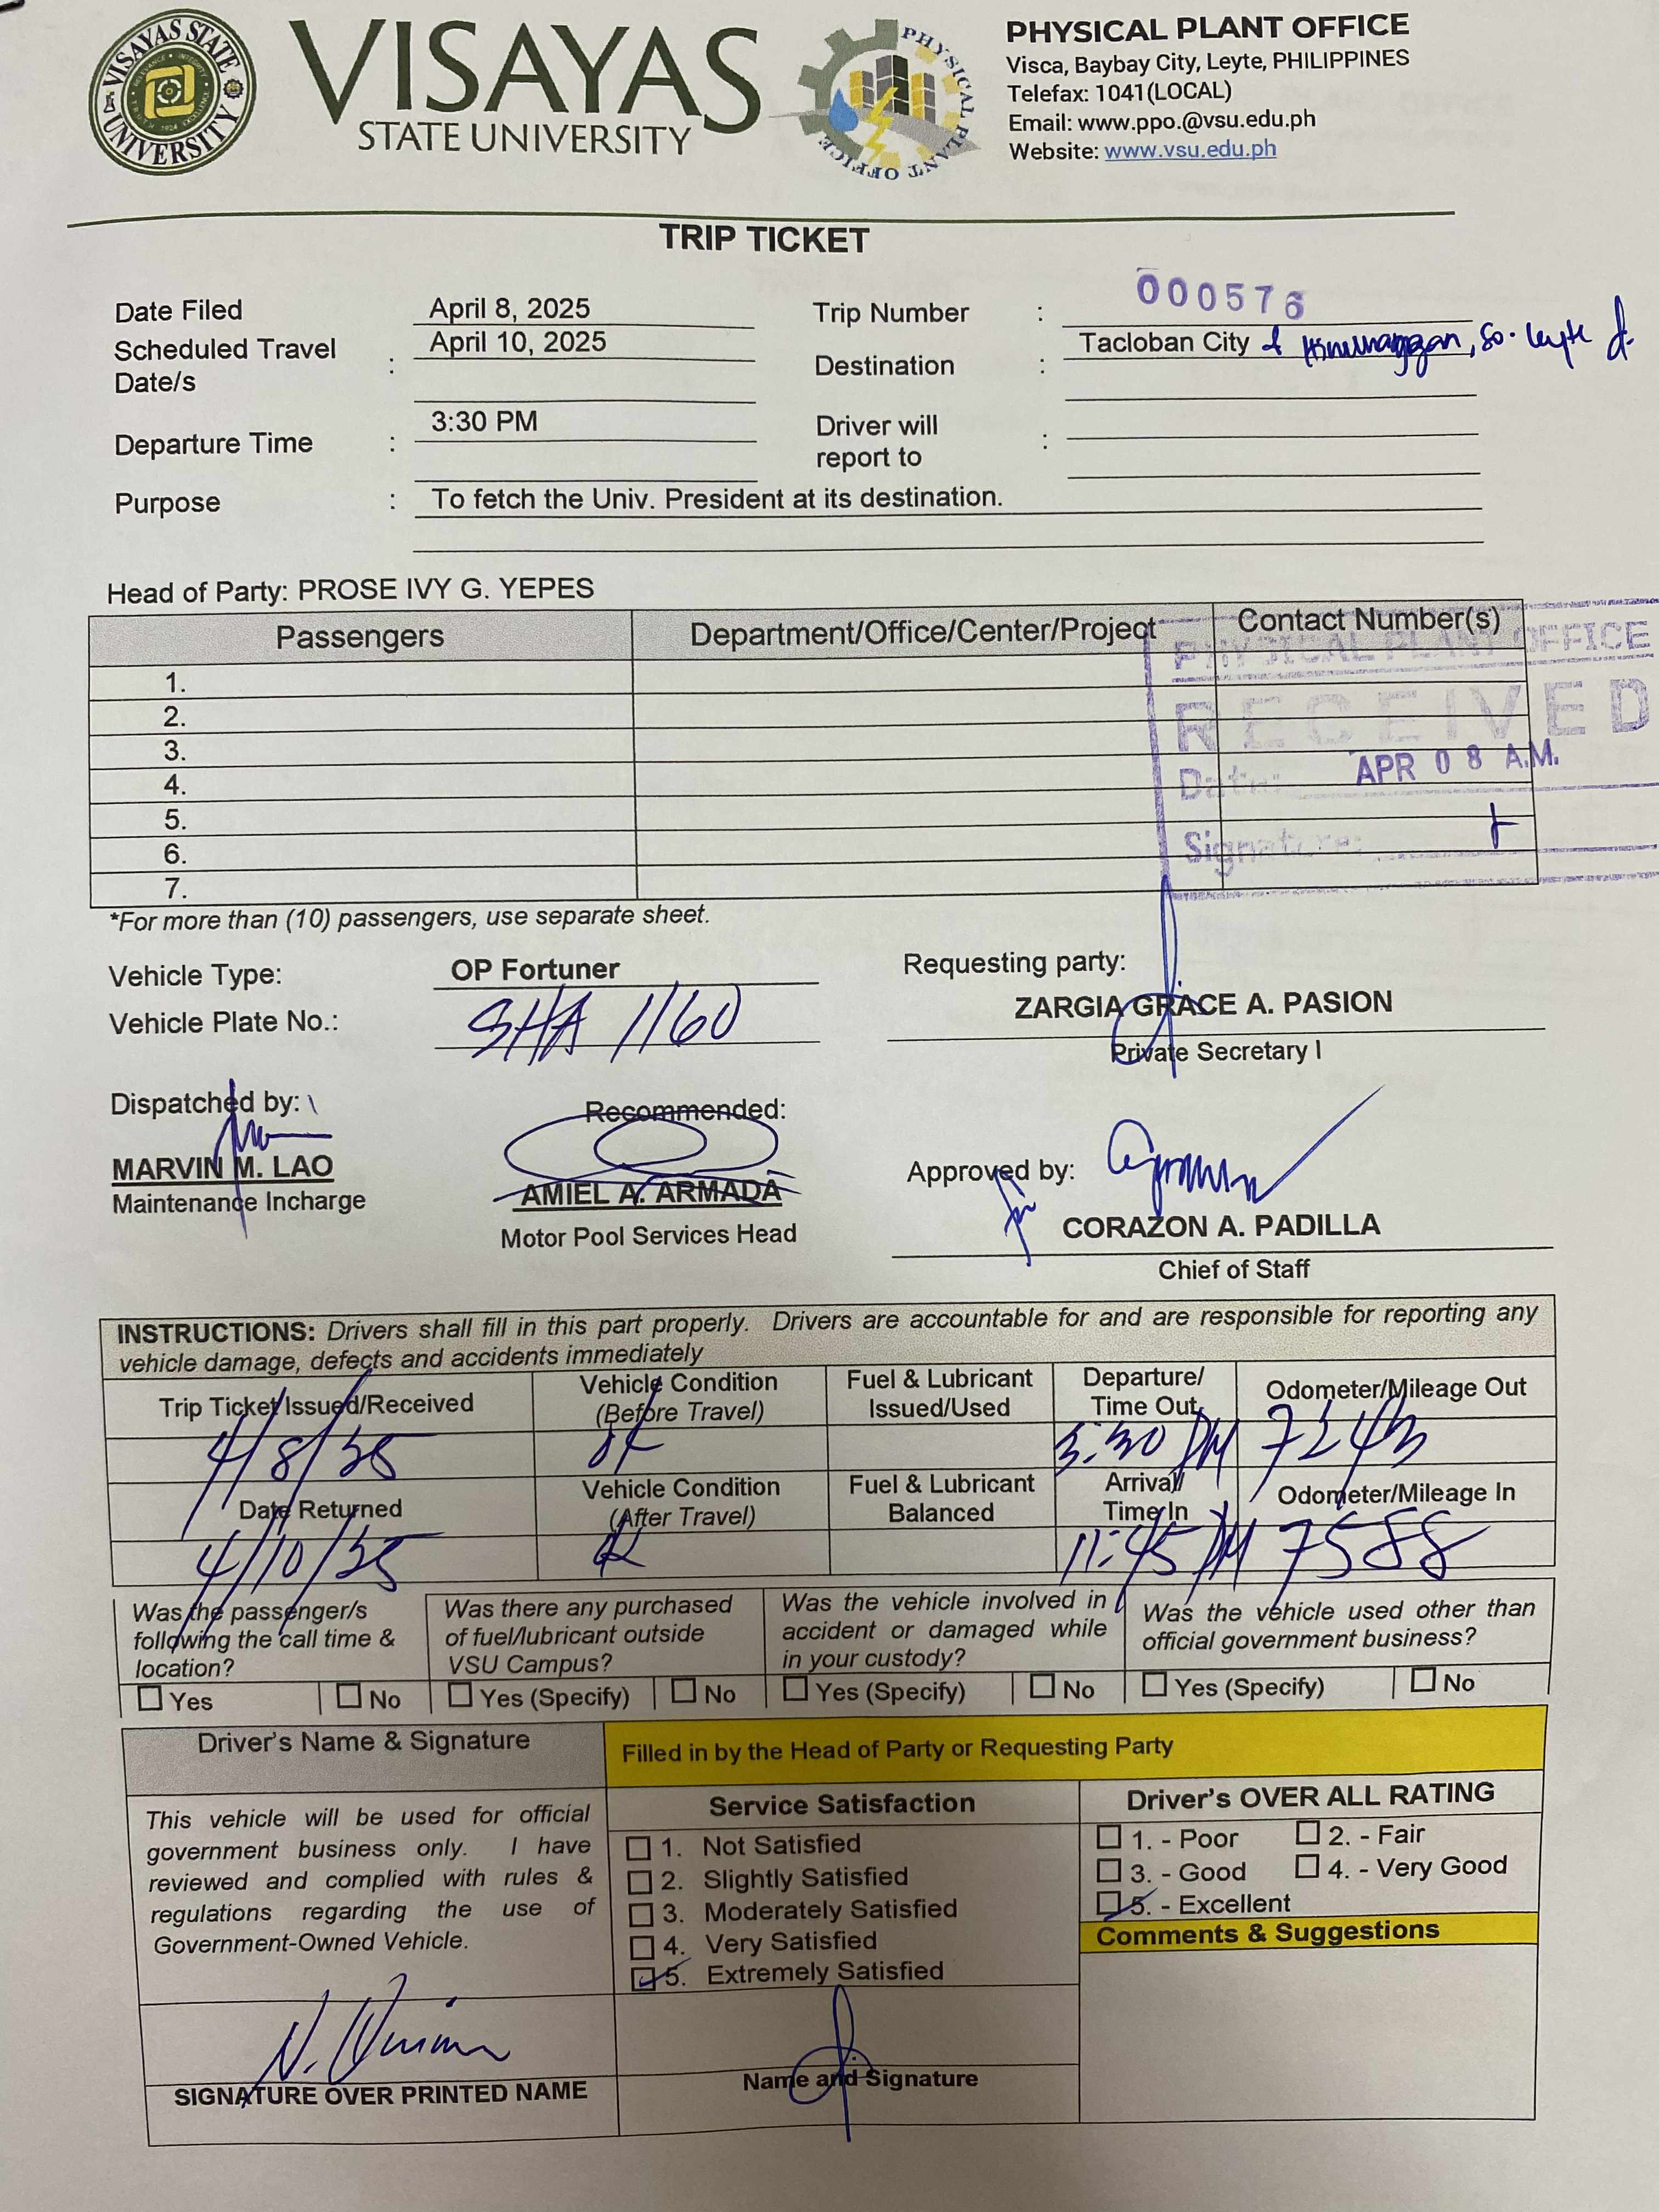 VISAYAS STATE UNIVERSITY
VISAYAS
STATE UNIVERSITY
PHYSICAL PLANT OFFICE
PHYSICAL PLANT OFFICE
Visca, Baybay City, Leyte, PHILIPPINES
Telefax: 1041(LOCAL)
Email: www.ppo.@vsu.edu.ph
Website: www.vsu.edu.ph
TRIP TICKET
Date Filed April 8, 2025
Trip Number : 000576
Scheduled Travel Date/s : April 10, 2025
Destination : Tacloban City & Hinunangan, So. Leyte
Departure Time : 3:30 PM
Driver will report to :
Purpose : To fetch the Univ. President at its destination.
Head of Party: PROSE IVY G. YEPES
Passengers Department/Office/Center/Project Contact Number(s)
1.
2.
3.
4.
5.
6.
7.
PHYSICAL PLANT OFFICE
RECEIVED
Date: APR 08 A.M.
Signature:
*For more than (10) passengers, use separate sheet.
Vehicle Type: OP Fortuner
Vehicle Plate No.: SHA 1160
Requesting party:
ZARGIA GRACE A. PASION
Private Secretary I
Dispatched by:
MARVIN M. LAO
Maintenance Incharge
Recommended:
AMIEL A. ARMADA
Motor Pool Services Head
Approved by:
CORAZON A. PADILLA
Chief of Staff
INSTRUCTIONS: Drivers shall fill in this part properly. Drivers are accountable for and are responsible for reporting any
vehicle damage, defects and accidents immediately
Trip Ticket Issued/Received Vehicle Condition (Before Travel) Fuel & Lubricant Issued/Used Departure/ Time Out Odometer/Mileage Out
4/8/25 ok 3:30 PM 7243
Date Returned Vehicle Condition (After Travel) Fuel & Lubricant Balanced Arrival/ Time In Odometer/Mileage In
4/10/25 ok 11:45 PM 7588
Was the passenger/s following the call time & location?
Yes No
Was there any purchased of fuel/lubricant outside VSU Campus?
Yes (Specify) No
Was the vehicle involved in accident or damaged while in your custody?
Yes (Specify) No
Was the vehicle used other than official government business?
Yes (Specify) No
Driver's Name & Signature
Filled in by the Head of Party or Requesting Party
This vehicle will be used for official
government business only. I have
reviewed and complied with rules &
regulations regarding the use of
Government-Owned Vehicle.
SIGNATURE OVER PRINTED NAME
Service Satisfaction
1. Not Satisfied
2. Slightly Satisfied
3. Moderately Satisfied
4. Very Satisfied
5. Extremely Satisfied
Name and Signature
Driver's OVER ALL RATING
1. - Poor 2. - Fair
3. - Good 4. - Very Good
5. - Excellent
Comments & Suggestions